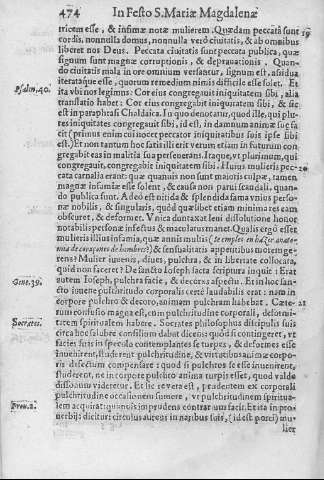 474 In Festo S. Mariæ Magdalenæ
tricem esse, & infimæ notæ mulierem. Quædam peccata sunt 19
cordis, nonnulla domus, nonnulla verò civitatis, & ab omnibus
liberet nos Deus. Peccata civitatis sunt peccata publica, quæ
signum sunt magnæ corruptionis, & depravationis. Quan-
do civitatis mala in ore omnium versantur, signum est, assidua
iterataque esse, quorum remedium nimis difficile esse solet. Et
Psalm. 40. ita vbi nos legimus: Cor eius congregavit iniquitatem sibi, alia
translatio habet: Cor eius congregabit iniquitatem sibi, & sic
est in paraphrasi Chaldaica. In quo denotatur, quod ille, qui plu-
res iniquitates congregabit sibi, id est, in damnum animæ suæ fa
cit (primus enim cui nocet peccator iniquitatibus suis ipse sibi
est.) Et non tantum hoc satis illi erit verum etiam in futurum con
gregabit eas in malitia sua perseverans. Itaque, vt plurimum, qui
congregauit, congregabit iniquitatem sibi. Huius mulieris pec- 20
cata carnalia erant: quæ quamuis non sunt maioris culpæ, tamen
magnæ infamiæ esse solent, & causa non parui scandali, quan-
do publica sunt. Adeo est nitida & splendida fama vnius perso-
næ nobilis, & singularis, quòd quælibet etiam minima res eam
obscuret, & deformet. Vnica duntaxat leui dissolutione honor
notabilis personæ infectus & maculatus manet. Qualis ergò esset
mulieris illius infamia, quæ annis multis
& sensualitatis appetitibus morem ge-
rens? Mulier iuuenis, diues, pulchra, & in libertate collocata,
quid non faceret? De sancto Joseph sacta scriptura inquit: Erat
Gene. 39. autem Joseph, pulchra facie, & decorus aspectu. Et in hoc san-
cto iuuene pulchritudo corporalis certè laudabilis erat: nam in
corpore pulchro & decoro, animam pulchram habebat. Cæte- 21
rum confusio magna est, cum pulchritudine corporali, deformi-
Socrates. tatem spiritualem habere. Socrates philosophus discipulis suis
circa hoc salubre consilium dabat dicens quòd si contingeret, vt
facies suas in speculo contemplantes se turpes, & deformes esse
inuenirent, studerent pulchritudine, & virtutibus animæ corpo-
ris defectum compensare: quòd si pulchros se esse inuenirent,
studerent, ne in corpore pulchro anima turpis esset, quod valde
dissonum videretur. Et sic revera est, prudentem ex corporali
pulchritudine occasionem sumere, vt pulchritudinem spiritua-
lem acquirat: quamuis imprudens contrarium facit. Et ita in pro-
Prou. 2. uerbijs dicitur: circulus aureus in naribus suis, (id est porci) mu-
lier